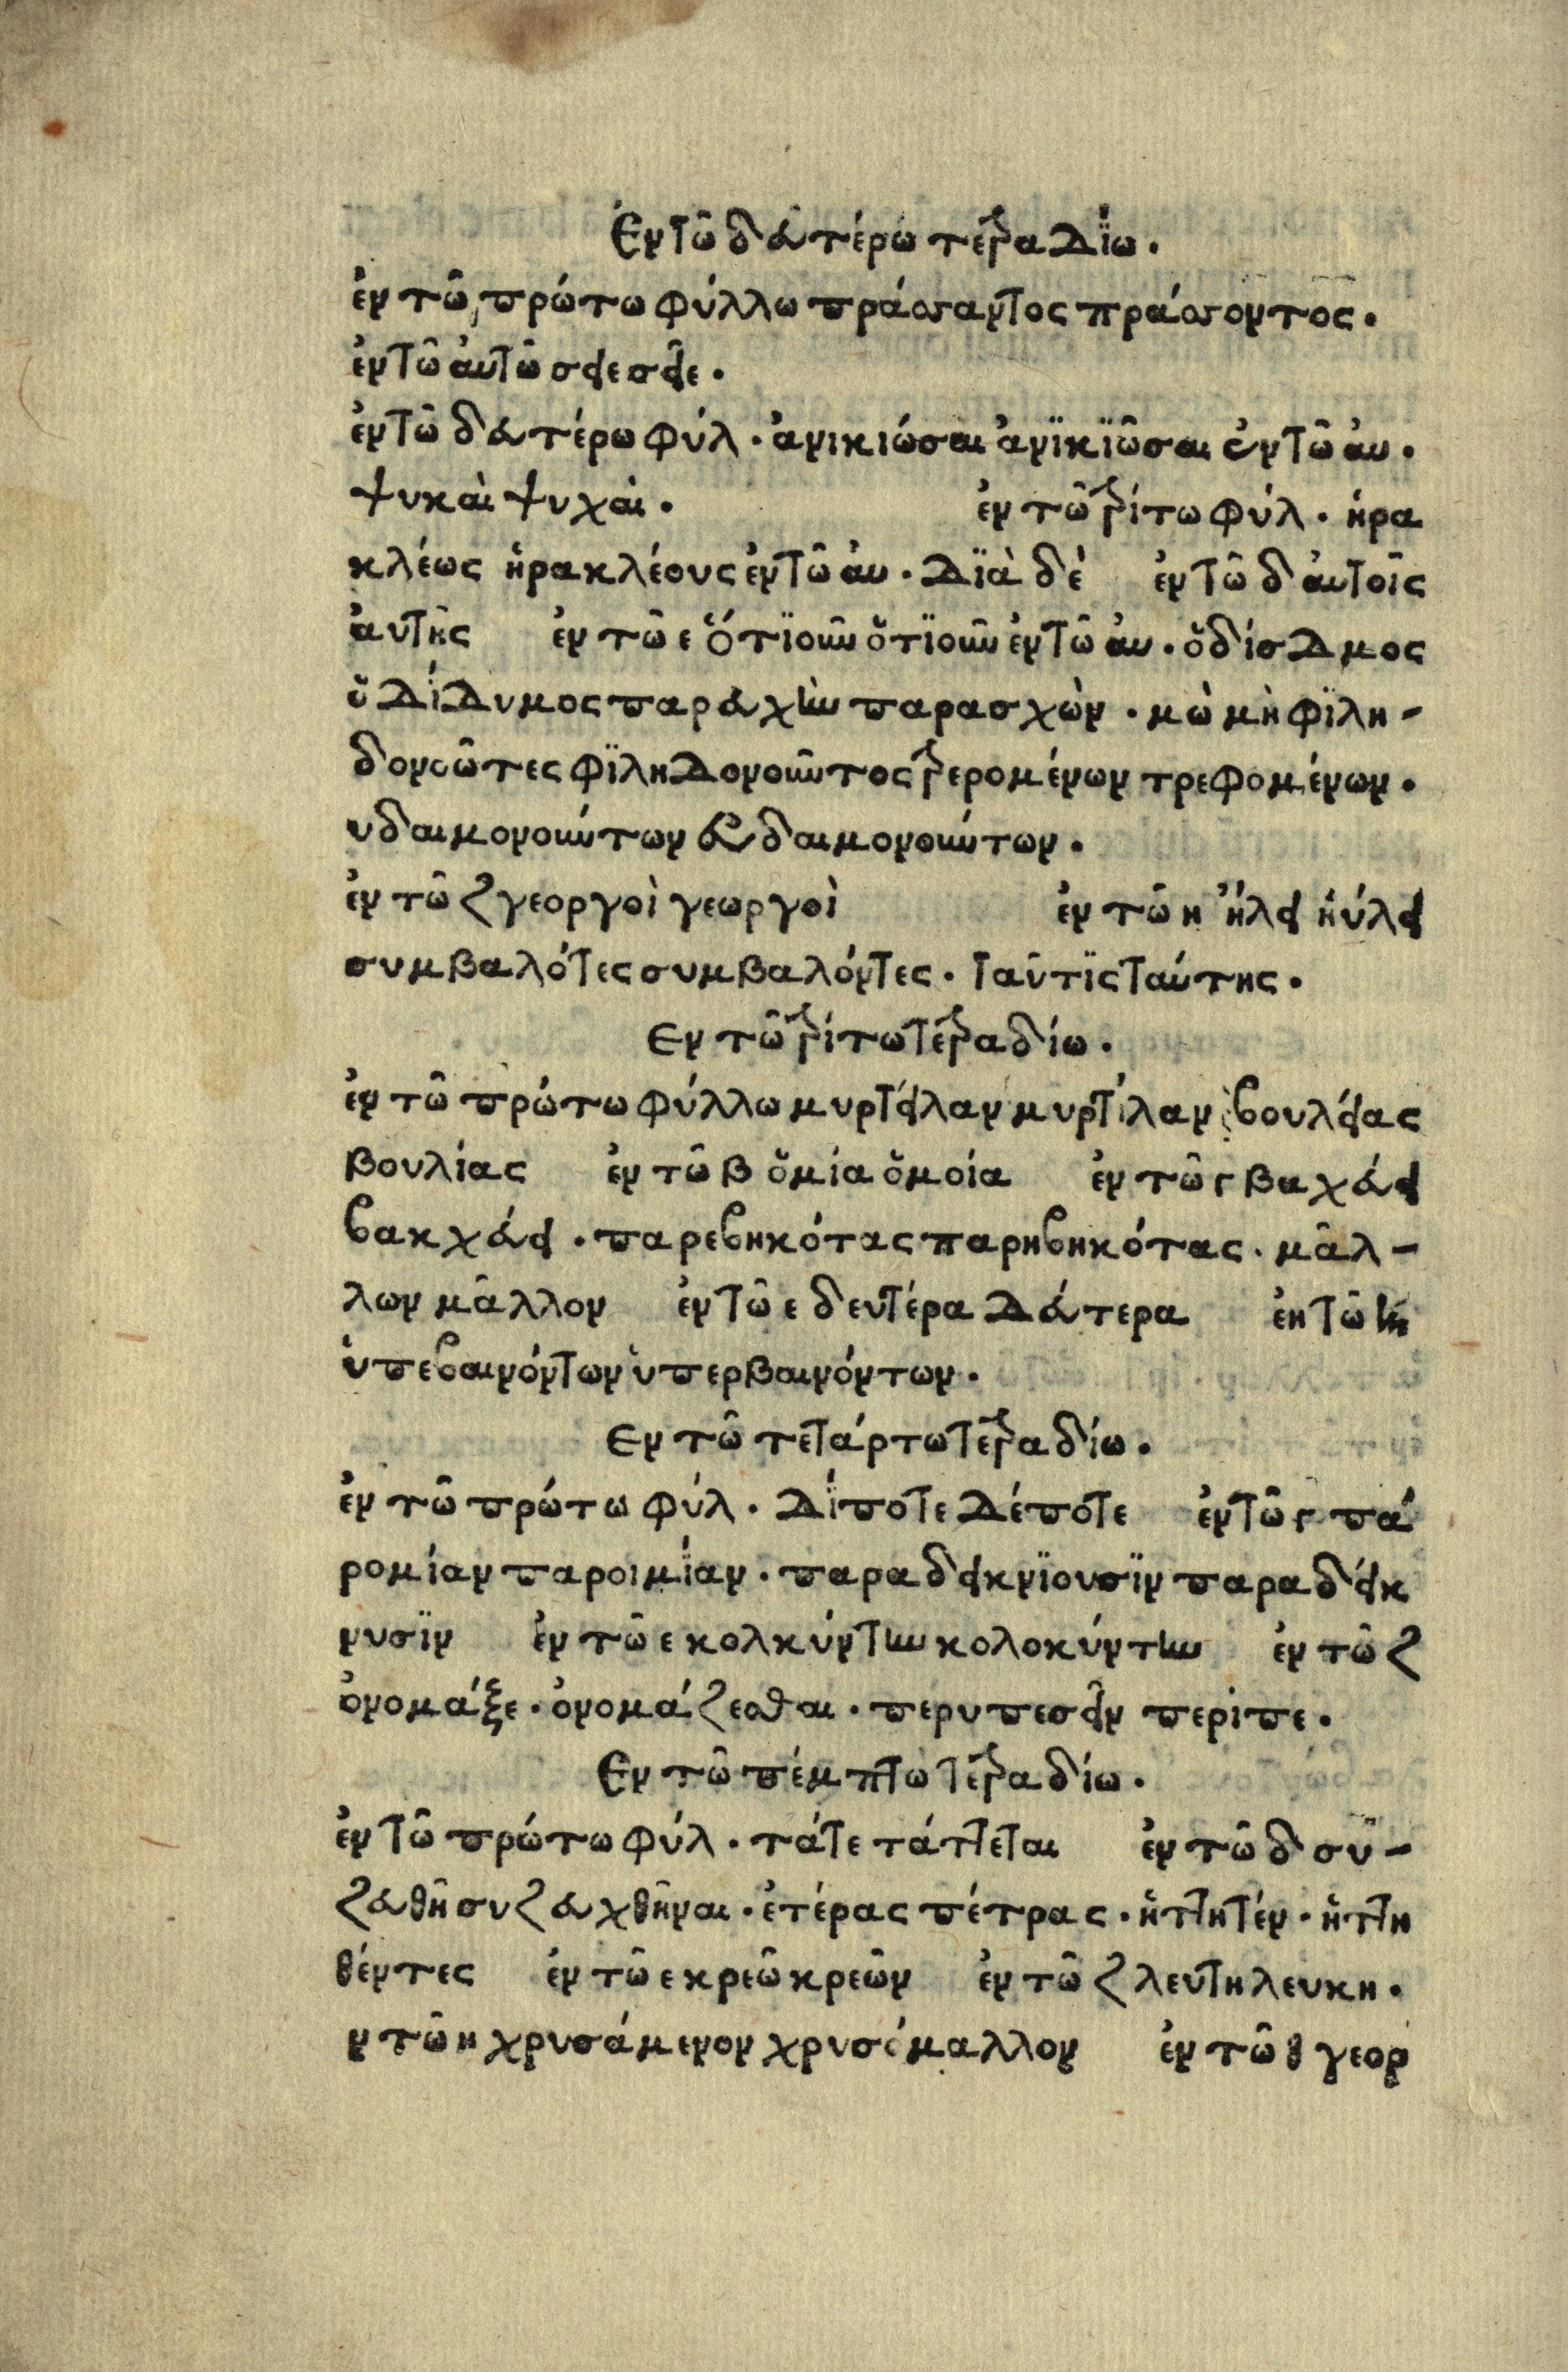 Ἐν τῶ δευτέρω τετραδΐω.
ἐν τῶ πρώτω φύλλω πράσσαντος πράσσοντος.
ἐν τῶ ἀυτῶ σειε σεῖε.
ἐν τῶ δευτέρω φύλ. ἀνικιώσαι ἀνϊκϊῶσαι ἐν τῶ ἀυ.
ψυκαὶ ψυχαὶ. ἐν τῶ τρίτω φύλ. ἡρα
κλέως ἡρακλέους ἐν τῶ ἀυ. Δϊὰ δὲ ἐν τῶ δ ἀυτοῖς
ἀυτῆς ἐν τῶ ε ὅτϊοιῦν ὅτϊοῦν ἐν τῶ ἀυ. ὅδίσδμος
ὅ δίδυμος παρευχὼν παρασχὼν. μὼ μὴ φϊλη-
δονοῶτες φϊληδονοῦντος τρερομένων τρεφομένων.
υδαιμονούντων ευδαιμονούντων.
ἐν τῶ ζ γεοργοὶ γεωργοὶ ἐν τῶ η ἤλει ἠύλει
συμβαλότες συμβαλόντες. ταῦτϊς ταύτης.
Εν τῶ τρίτω τετραδίω.
ἐν τῶ πρώτω φύλλω μυρτείλαν μυρτίλαν βουλείας
βουλίας ἐν τῶ β ὅμία ὅμοία ἐν τῶ γ βαχεύει
βακχεύει. παρεβηκότας παρηβηκότας. μᾶλ-
λων μᾶλλον ἐν τῶ ε δευτέρα δεύτερα ἐν τῶ η
ὑπεβαινόντων ὑπερβαινόντων.
Εν τῶ τετάρτω τετραδίω.
ἐν τῶ πρώτω φύλ. Δΐποτε Δέποτε ἐν τῶ γ πα
ρομίαν παροιμΐαν. παραδεικνϊουσϊν παραδείκ
νυσϊν ἐν τῶ ε κολκύντην κολοκύντην ἐν τῶ ζ
ὀνομάξε. ὀνομάζεσθαι. περυπεσεῖν περιπε.
Εν τῶ πέμπτω τετραδίω.
ἐν τῶ πρώτω φύλ. τάτε τάττεται ἐν τῶ δ συ-
ζευθῆ συζευχθῆναι. ἑτέρας πέτρας. ἡττητέν. ἡττη
θέντες ἐν τῶ ε κρεῶ κρεῶν ἐν τῶ ζ λευτη λευκη.
ν τῶ η χρυσάμενον χρυσόμαλλον ἐν τῶ θ γεορ